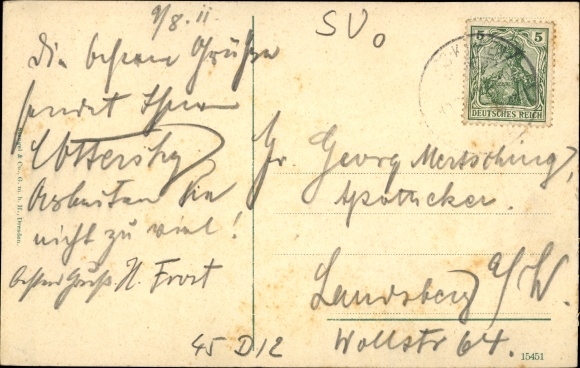 9/8.11
Die besten Grüße
sendet Ihnen
Arbeiten Sie
nicht zu viel!
besten Gruß H. Frost
SVo
5 5
DEUTSCHES REICH
Hr Georg Mertsching,
Apotheker.
Landsberg a/W.
Wollstr 64.
45 D12
15451
& Co., G. m. b. H., Dresden.